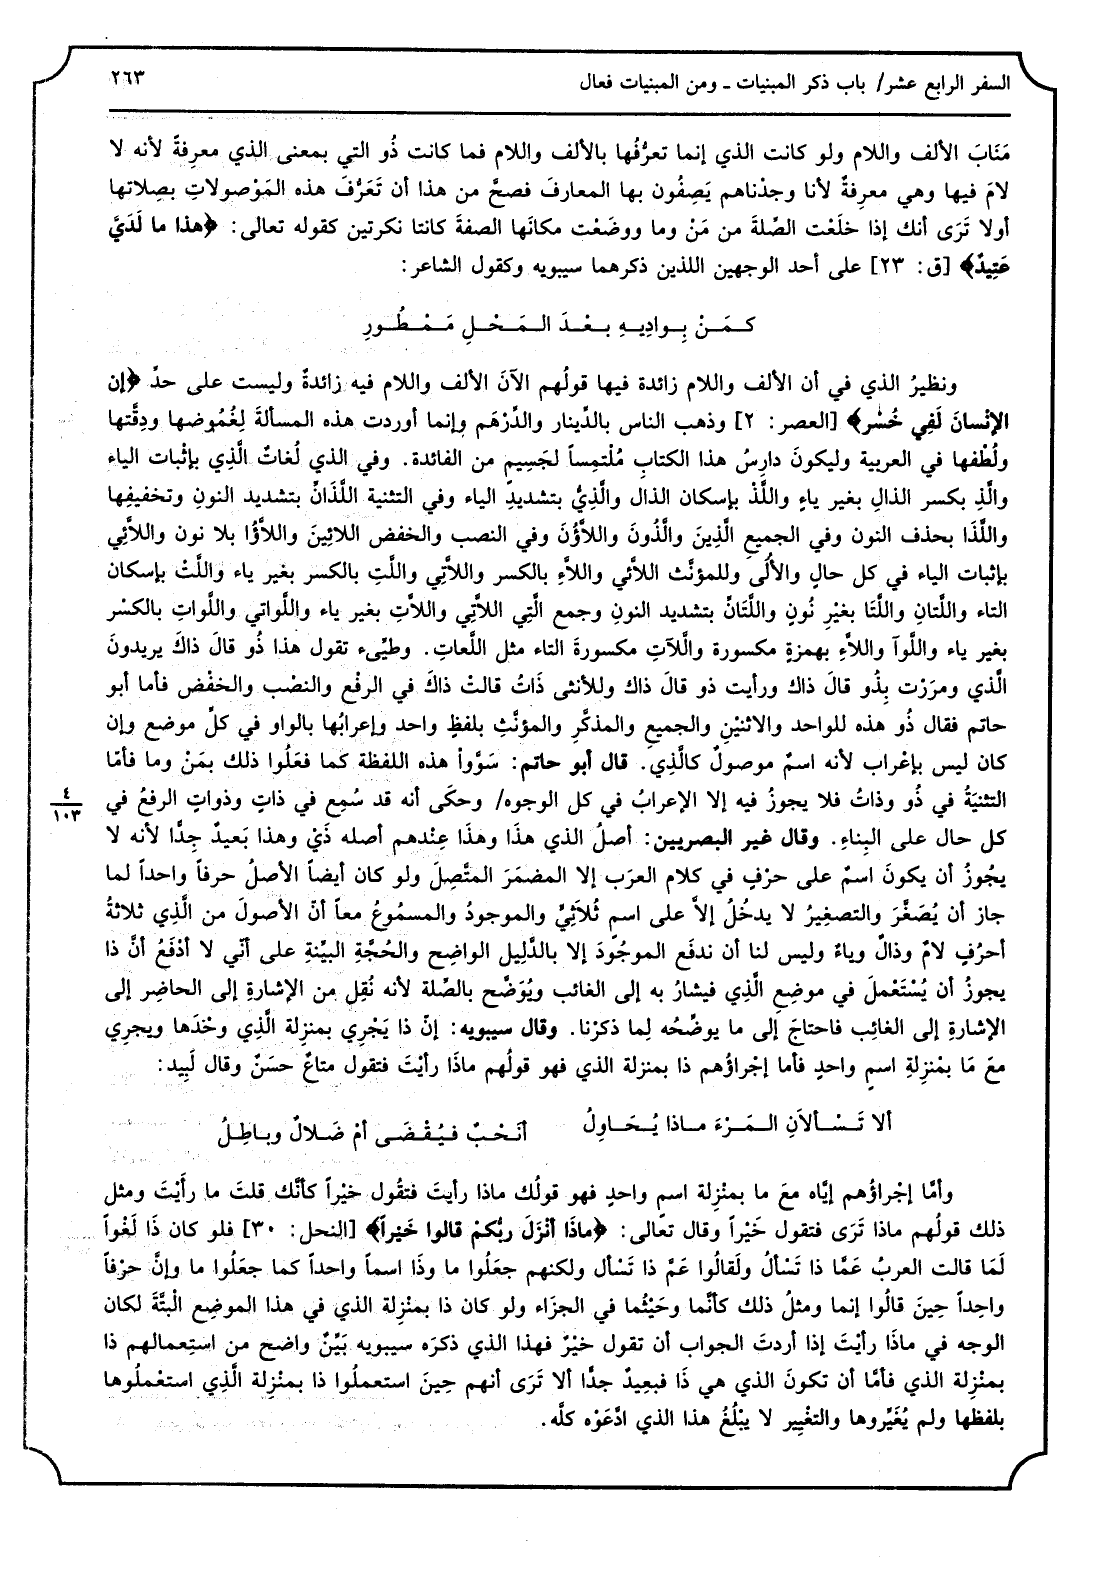 السفر الرابع عشر/ باب ذكر المبنيات ـ ومن المبنيات فعال
٢٦٣
مَنَابَ الألف واللام ولو كانت الذي إنما تعرُّفُها بالألف واللام فما كانت ذُو التي بمعنى الذي معرِفةً لأنه لا
لامَ فيها وهي معرِفةٌ لأنا وجدْناهم يَصِفُون بها المعارفَ فصحَّ من هذا أن تَعَرُّفَ هذه المَوْصولاتِ بصِلاتها
أولا تَرَى أنك إذا خلَعْت الصِّلةَ من مَنْ وما ووضَعْت مكانَها الصفةَ كانتا نكرتين كقوله تعالى: ﴿هذا ما لَدَيَّ
عَتِيدٌ﴾ [ق: ٢٣] على أحد الوجهين اللذين ذكرهما سيبويه وكقول الشاعر:
كـمَـنْ بِـوادِيـهِ بـعْـدَ الـمَـحْـلِ مَـمْـطُـورِ
ونظيرُ الذي في أن الألف واللام زائدة فيها قولُهم الآنَ الألف واللام فيه زائدةٌ وليست على حدِّ ﴿إن
الإنْسانَ لَفِي خُسْر﴾ [العصر: ٢] وذهب الناس بالدِّينار والدِّرْهَم وإنما أوردت هذه المسألةَ لِغُمُوضها ودِقَّتها
ولُطْفها في العربية وليكونَ دارِسُ هذا الكتابِ مُلْتمِساً لجَسِيمٍ من الفائدة. وفي الذي لُغاتٌ الَّذِي بإثبات الياء
والَّذِ بكسر الذالِ بغير ياءٍ واللَّذْ بإسكان الذال والَّذِيُّ بتشديدِ الياء وفي التثنية اللَّذَانِّ بتشديد النونِ وتخفيفِها
واللَّذَا بحذف النون وفي الجميعِ الَّذِينَ والَّذُونَ واللاَّؤُنَ وفي النصب والخفض اللائِينَ واللاؤُا بلا نون واللاَّئِي
بإثبات الياء في كل حالٍ والأُلَى وللمؤنَّث اللائي واللاَّءِ بالكسر واللاَّتِي واللَّتِ بالكسر بغير ياء واللَّتْ بإسكان
التاء واللَّتانِ واللَّتَا بغيْرِ نُونٍ واللَّتَانِّ بتشديد النونِ وجمع الَّتِي اللاَّتِي واللاَّتِ بغير ياء واللَّواتي واللَّواتِ بالكسْر
بغير ياء واللَّوآ واللاَّءِ بهمزةٍ مكسورة واللَّآتِ مكسورةَ التاء مثل اللَّعاتِ. وطيِّىء تقول هذا ذُو قالَ ذاكَ يريدونَ
الَّذي ومرَرْت بِذُو قالَ ذاك ورأيت ذو قالَ ذاك وللأنثى ذَاتُ قالتْ ذاكَ في الرفْع والنصْب والخفْض فأما أبو
حاتم فقال ذُو هذه للواحد والاثنيْنِ والجميعِ والمذكَّرِ والمؤنَّثِ بلفظٍ واحد وإعرابُها بالواو في كلِّ موضع وإن
كان ليس بإعْراب لأنه اسمٌ موصولٌ كالَّذِي. قال أبو حاتم: سَوَّواْ هذه اللفظة كما فعَلُوا ذلك بمَنْ وما فأمّا
التثنيَةُ في ذُو وذَاتُ فلا يجوزُ فيه إلا الإعرابُ في كل الوجوه/ وحكَى أنه قد سُمِع في ذاتٍ وذواتٍ الرفعُ في
٤
١٠٣
كل حال على البِناءِ. وقال غير البصريين: أصلُ الذي هذَا وهذَا عِنْدهم أصله ذَيْ وهذا بَعيدٌ جِدًّا لأنه لا
يجُوزُ أن يكونَ اسمٌ على حرْفٍ في كلام العرَب إلا المضمَرَ المتَّصِلَ ولو كان أيضاً الأصلُ حرفاً واحداً لما
جاز أن يُصَغَّرَ والتصغيرُ لا يدخُلُ إلاَّ على اسمٍ ثُلاَثِيٍّ والموجودُ والمسمُوعُ معاً أنّ الأصولَ من الَّذِي ثلاثةُ
أحرُفٍ لامٌ وذالٌ وياءٌ وليس لنا أن ندفَع الموجُودَ إلا بالدَّلِيل الواضِح والحُجَّةِ البيِّنةِ على أنّي لا أدْفَعُ أنَّ ذا
يجوزُ أن يُسْتَعْملَ في موضِعِ الَّذِي فيشارُ به إلى الغائب ويُوَضَّح بالصِّلة لأنه نُقِل من الإشارةِ إلى الحاضِر إلى
الإشارةِ إلى الغائِب فاحتاجَ إلى ما يوضِّحُه لِما ذكرْنا. وقال سيبويه: إنّ ذا يَجْرِي بمنزِلة الَّذِي وحْدَها ويجرِي
معَ مَا بمْنزِلةِ اسمٍ واحدٍ فأما إجْراؤُهم ذا بمنزلة الذي فهو قولُهم ماذَا رأيْتَ فتقول متاعٌ حسَنٌ وقال لَبِيد:
ألا تَـسْـألاَنِ الـمَـرْءَ مـاذا يُـحَـاوِلُ
أنَـحْبٌ فـيُـقْـضَـى أمْ ضَـلالٌ وبـاطِـلُ
وأمَّا إجْراؤُهم إيَّاه معَ ما بمنْزِلة اسمٍ واحدٍ فهو قولُك ماذا رأيتَ فتقُول خيْراً كأنَّك قلتَ ما رأَيْتَ ومثل
ذلك قولُهم ماذا تَرَى فتقول خَيْراً وقال تعالى: ﴿ماذَا أنْزَلَ ربُّكمْ قالوا خَيْراً﴾ [النحل: ٣٠] فلو كان ذَا لَغْواً
لَمَا قالت العربُ عَمَّا ذا تَسْألُ ولَقالُوا عَمَّ ذا تَسْأل ولكنهم جعَلُوا ما وذَا اسماً واحداً كما جعَلُوا ما وإنَّ حرْفاً
واحِداً حِينَ قالُوا إنما ومثلُ ذلك كأنَّما وحَيْثُما في الجزَاء ولو كان ذا بمنْزِلة الذي في هذا الموضِع الْبتَّةَ لكان
الوجه في ماذَا رأيْتَ إذا أردتَ الجواب أن تقول خيْرٌ فهذا الذي ذكرَه سيبويه بَيِّنٌ واضح من استِعمالهم ذا
بمنْزِلة الذي فأمَّا أن تكونَ الذي هي ذَا فبعِيدٌ جدًّا ألا تَرَى أنهم حِينَ استعملُوا ذا بمنْزِلة الَّذِي استعْملُوها
بلفظها ولم يُغَيِّروها والتغْيِير لا يبْلُغُ هذا الذي ادَّعَوْه كلَّه.